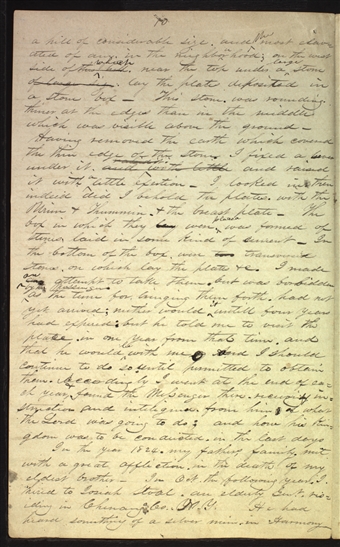 a hill of considerable size, and the most elevated
ated of any in the neighborhood; on the west
side of this hill not far from
near the top under a stone
large
of large size, lay the plates deposited in
a stone box - This stone was rounding
thicker at the edges than in the middle
which was visible above the ground -
Having removed the earth which covered
the thin edge of the stone, I fixed a lever
under it and with little and raised
it with little exertion - I looked in then
indeed did I behold the plates, with the
Urim & Thummim & the breast plate - The
box in which they lay were was formed of
stones laid in some kind of cement - In
the bottom of the box were transverse
stone, on which lay the plates &c. I made
an attempt to take them, but was forbidden
as the time for bringing them forth had not
yet arrived; neither would untill four years
had expired; but he told me to visit the
place in one year from that time, and
that he would with me and I should
continue to do so until permitted to obtain
them. Accordingly I went at the end of ea-
ch year, found the Messenger there, receiving in-
struction and intelligence from him of what
the Lord was going to do; and how his Kin-
gdom was to be conducted in the last days
In the year 1824 my father's family met
with a great affliction in the death of my
eldest brother - In Oct the following year, I
hired to Josiah Stoal, an elderly Gent. resi-
ding in Chenango Co. N.Y. He had
heard something of a silver mine in Harmony